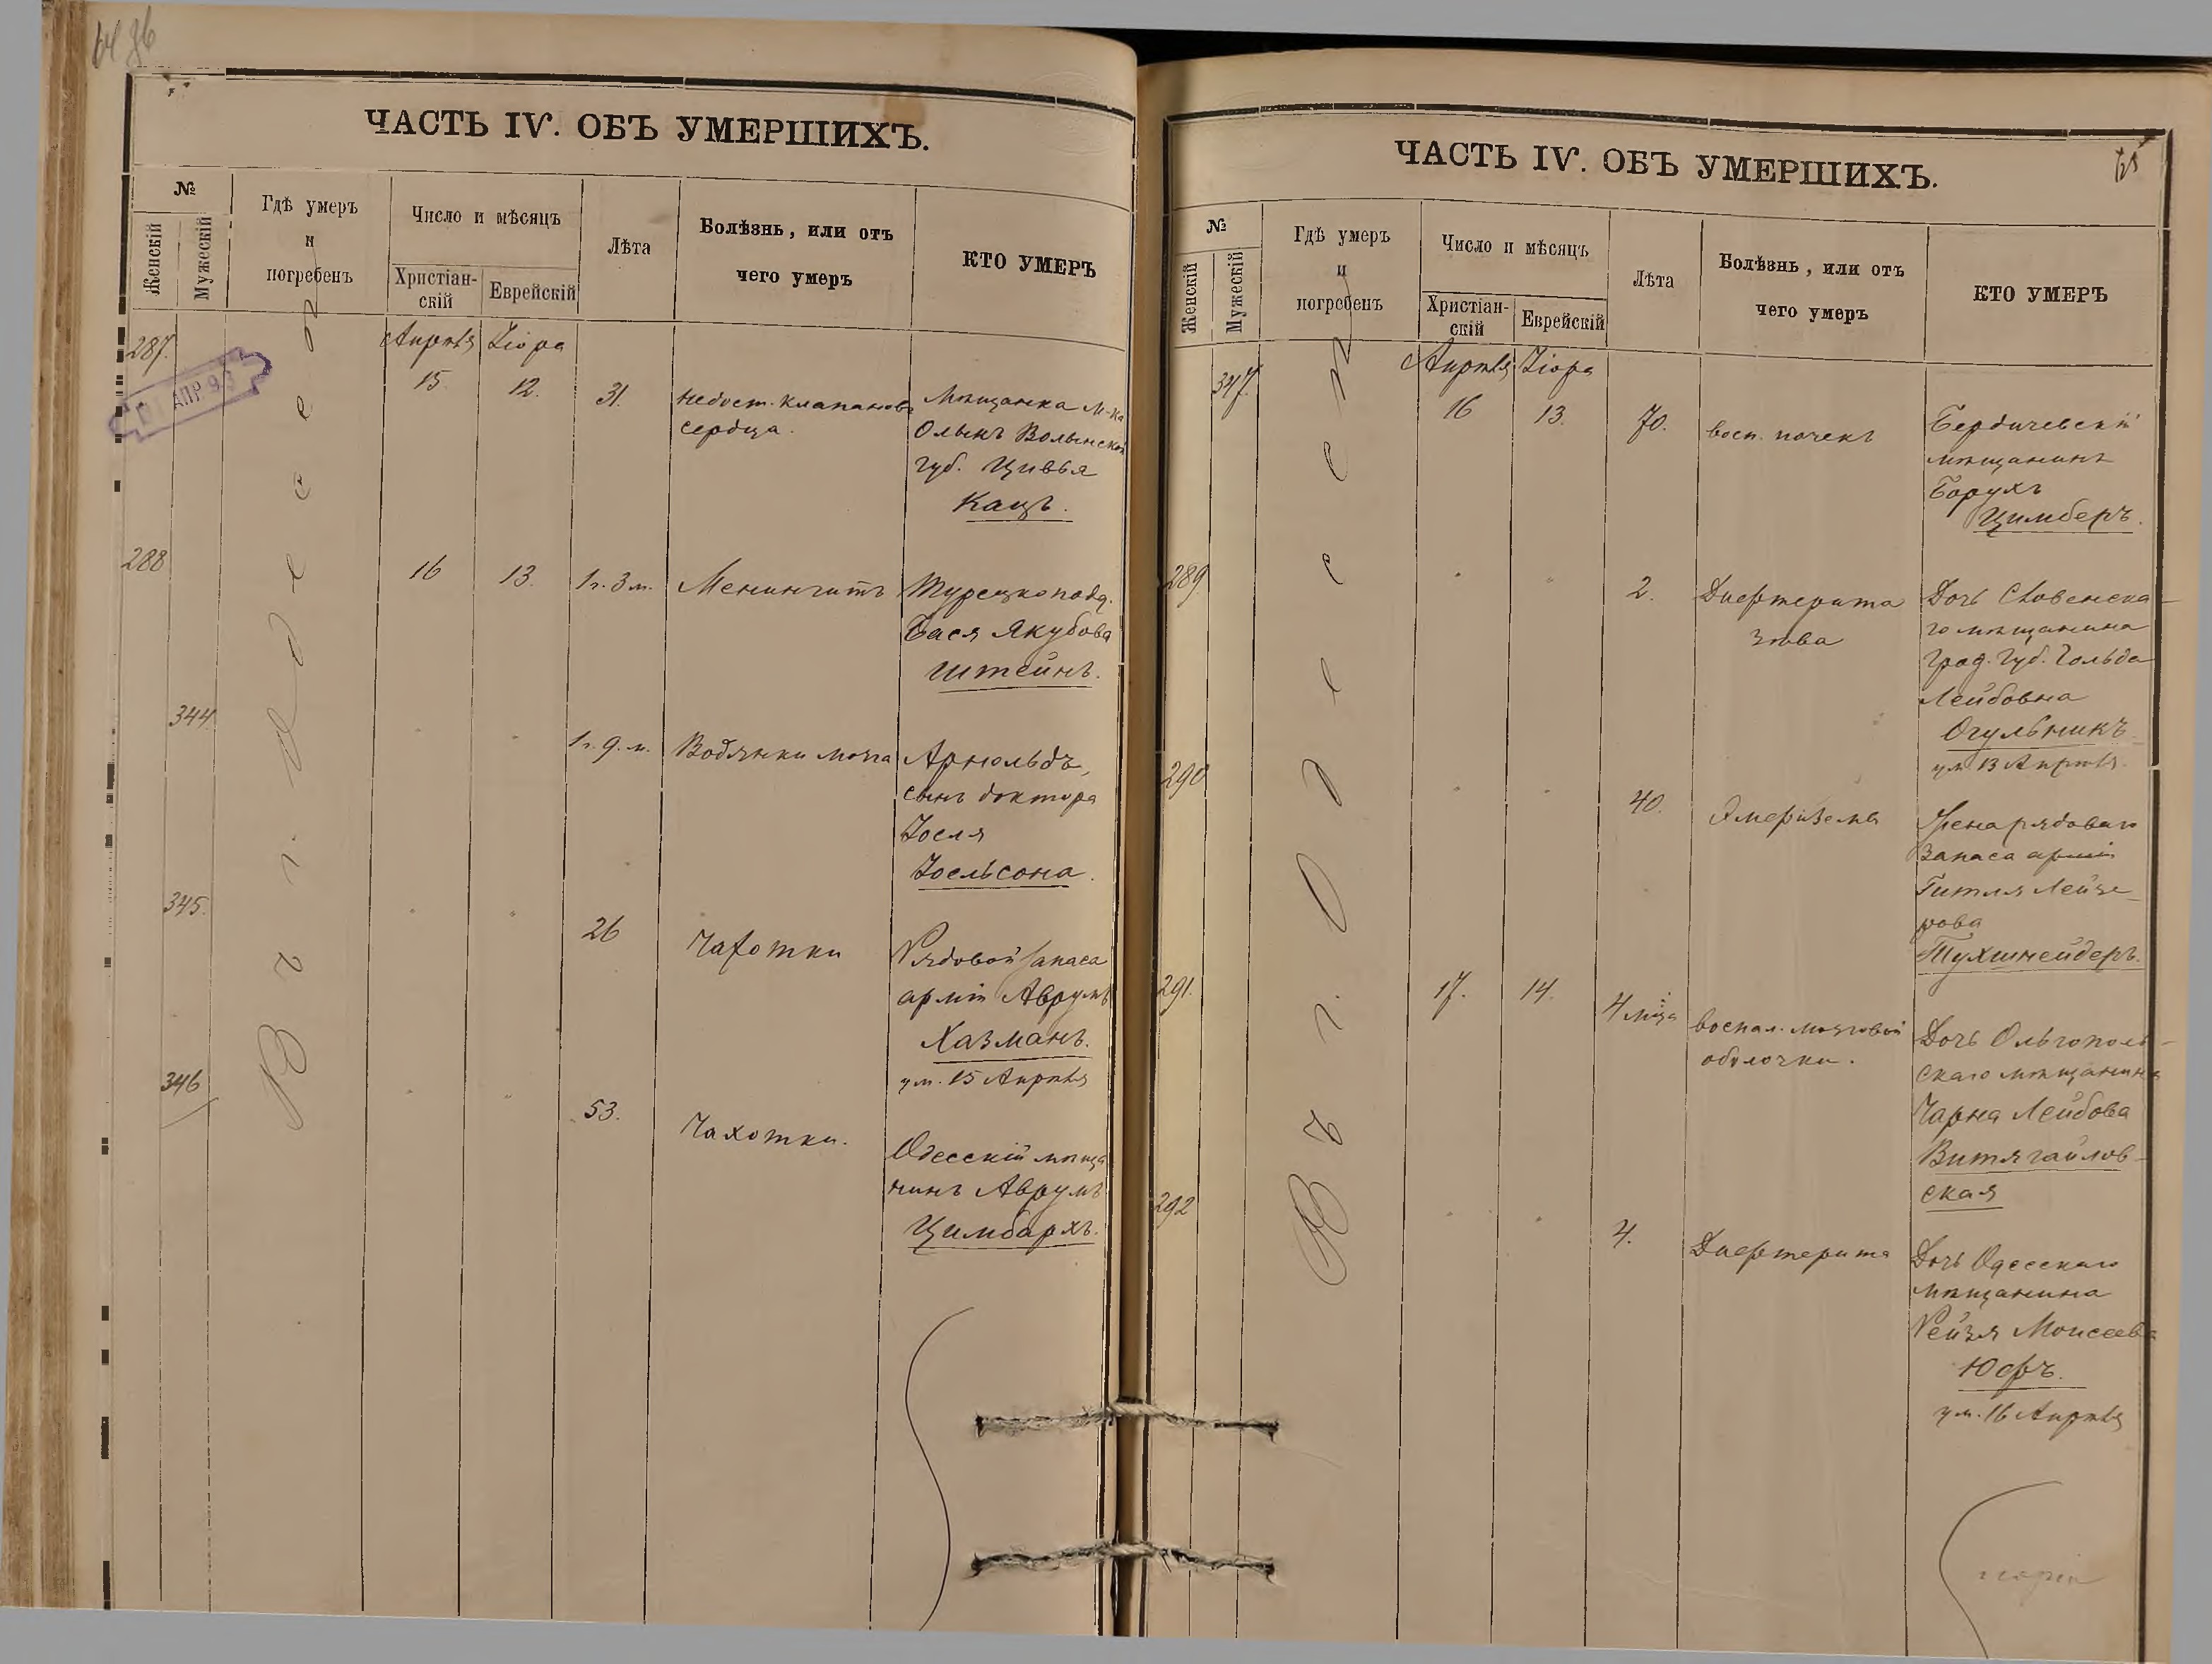 64 86
ЧАСТЬ IV. ОБЪ УМЕРШИХЪ.
№
Женскій
Мужескій
Гдѣ умеръ
и
погребенъ
Число и мѣсяцъ
Христіан-
скій
Еврейскій
Лѣта
Болѣзнь, или отъ
чего умеръ
КТО УМЕРЪ
Въ г. Одессе
АПР 93
287.
Апрѣля
Ііора
15
12.
31.
недост. клапановъ
сердца.
Мѣщанка м-ка
Олыкъ Волынской
губ. Цивья
Кацъ.
288
16
13.
1 г. 3 м.
Менингитъ
Турецкопод.
Бася Якубова
Штейнъ.
344.
"
"
1 г. 9. м.
Водянки мозга
Арнольдъ,
сынъ доктора
Іоселя
Іоельсона.
345.
"
"
26
Чахотки
Рядовой запаса
арміи Аврумъ
Хазманъ.
ум. 15 Апрѣля
346
"
"
53.
Чахотки.
Одесскій мѣща
нинъ Аврумъ
Цимбархъ.
ЧАСТЬ IV. ОБЪ УМЕРШИХЪ.
65
№
Женскій
Мужескій
Гдѣ умеръ
и
погребенъ
Число и мѣсяцъ
Христіан-
скій
Еврейскій
Лѣта
Болѣзнь, или отъ
чего умеръ
КТО УМЕРЪ
Въ г. Одессе
347.
Апрѣля
Ііора
16
13.
70.
восп. почекъ
Бердичевскій
мѣщанинъ
Борухъ
Цимберъ.
289
"
"
2.
Дифтерита
зѣва
Дочь Словенска-
го мѣщанина
Грод. Губ. Гольда
Лейбовна
Огульникъ
ум. 13 Апрѣля.
290
"
"
40.
Эмфизема
Жена рядоваго
Запаса арміи
Гитля Лейзе-
рова
Тухшнейдеръ.
291.
17.
14.
4 м-ца
воспал. мозговой
оболочки.
Дочь Ольгополь-
скаго мѣщанина
Чарна Лейбова
Витягайлов-
ская
292
"
"
4.
Дифтерита
Дочь Одесскаго
мѣщанина
Рейзя Моисеева
Юфъ.
ум. 16 Апрѣля